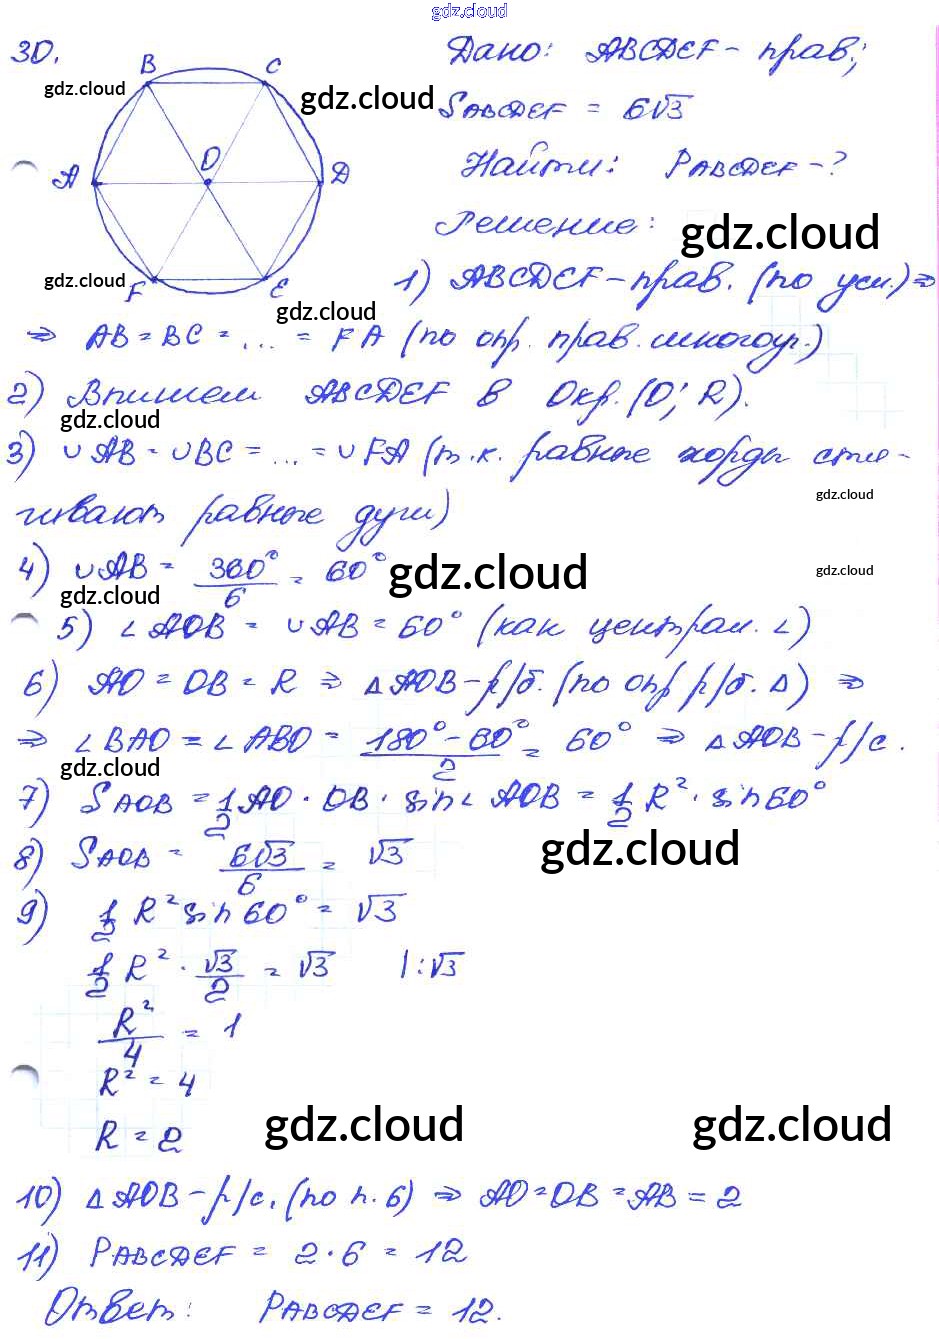 gdz.cloud
30.
B C
gdz.cloud
gdz.cloud
A O D
gdz.cloud
F E
gdz.cloud
Дано: ABCDEF - прав;
SABCDEF = 6√3
Найти: PABCDEF - ?
Решение:
gdz.cloud
1) ABCDEF - прав. (по усл.) ⇒
⇒ AB = BC = ... = FA (по опр. прав. многоуг.)
2) Впишем ABCDEF в Окр. (O; R).
gdz.cloud
3) ∪AB = ∪BC = ... = ∪FA (т.к. равные хорды стя-
gdz.cloud
гивают равные дуги)
4) ∪AB = 360°/6 = 60°
gdz.cloud
gdz.cloud
gdz.cloud
5) ∠AOB = ∪AB = 60° (как централ. ∠)
6) AO = OB = R ⇒ △AOB - р/б. (по опр р/б. △) ⇒
⇒ ∠BAO = ∠ABO = (180° - 60°)/2 = 60° ⇒ △AOB - р/с.
gdz.cloud
7) SAOB = 1/2 AO · OB · sin∠AOB = 1/2 R² · sin 60°
8) SAOB = 6√3/6 = √3
gdz.cloud
9) 1/2 R² sin 60° = √3
1/2 R² · √3/2 = √3 | : √3
R²/4 = 1
R² = 4
R = 2
gdz.cloud
gdz.cloud
10) △AOB - р/с. (по п. 6) ⇒ AO = OB = AB = 2
11) PABCDEF = 2 · 6 = 12
Ответ: PABCDEF = 12.